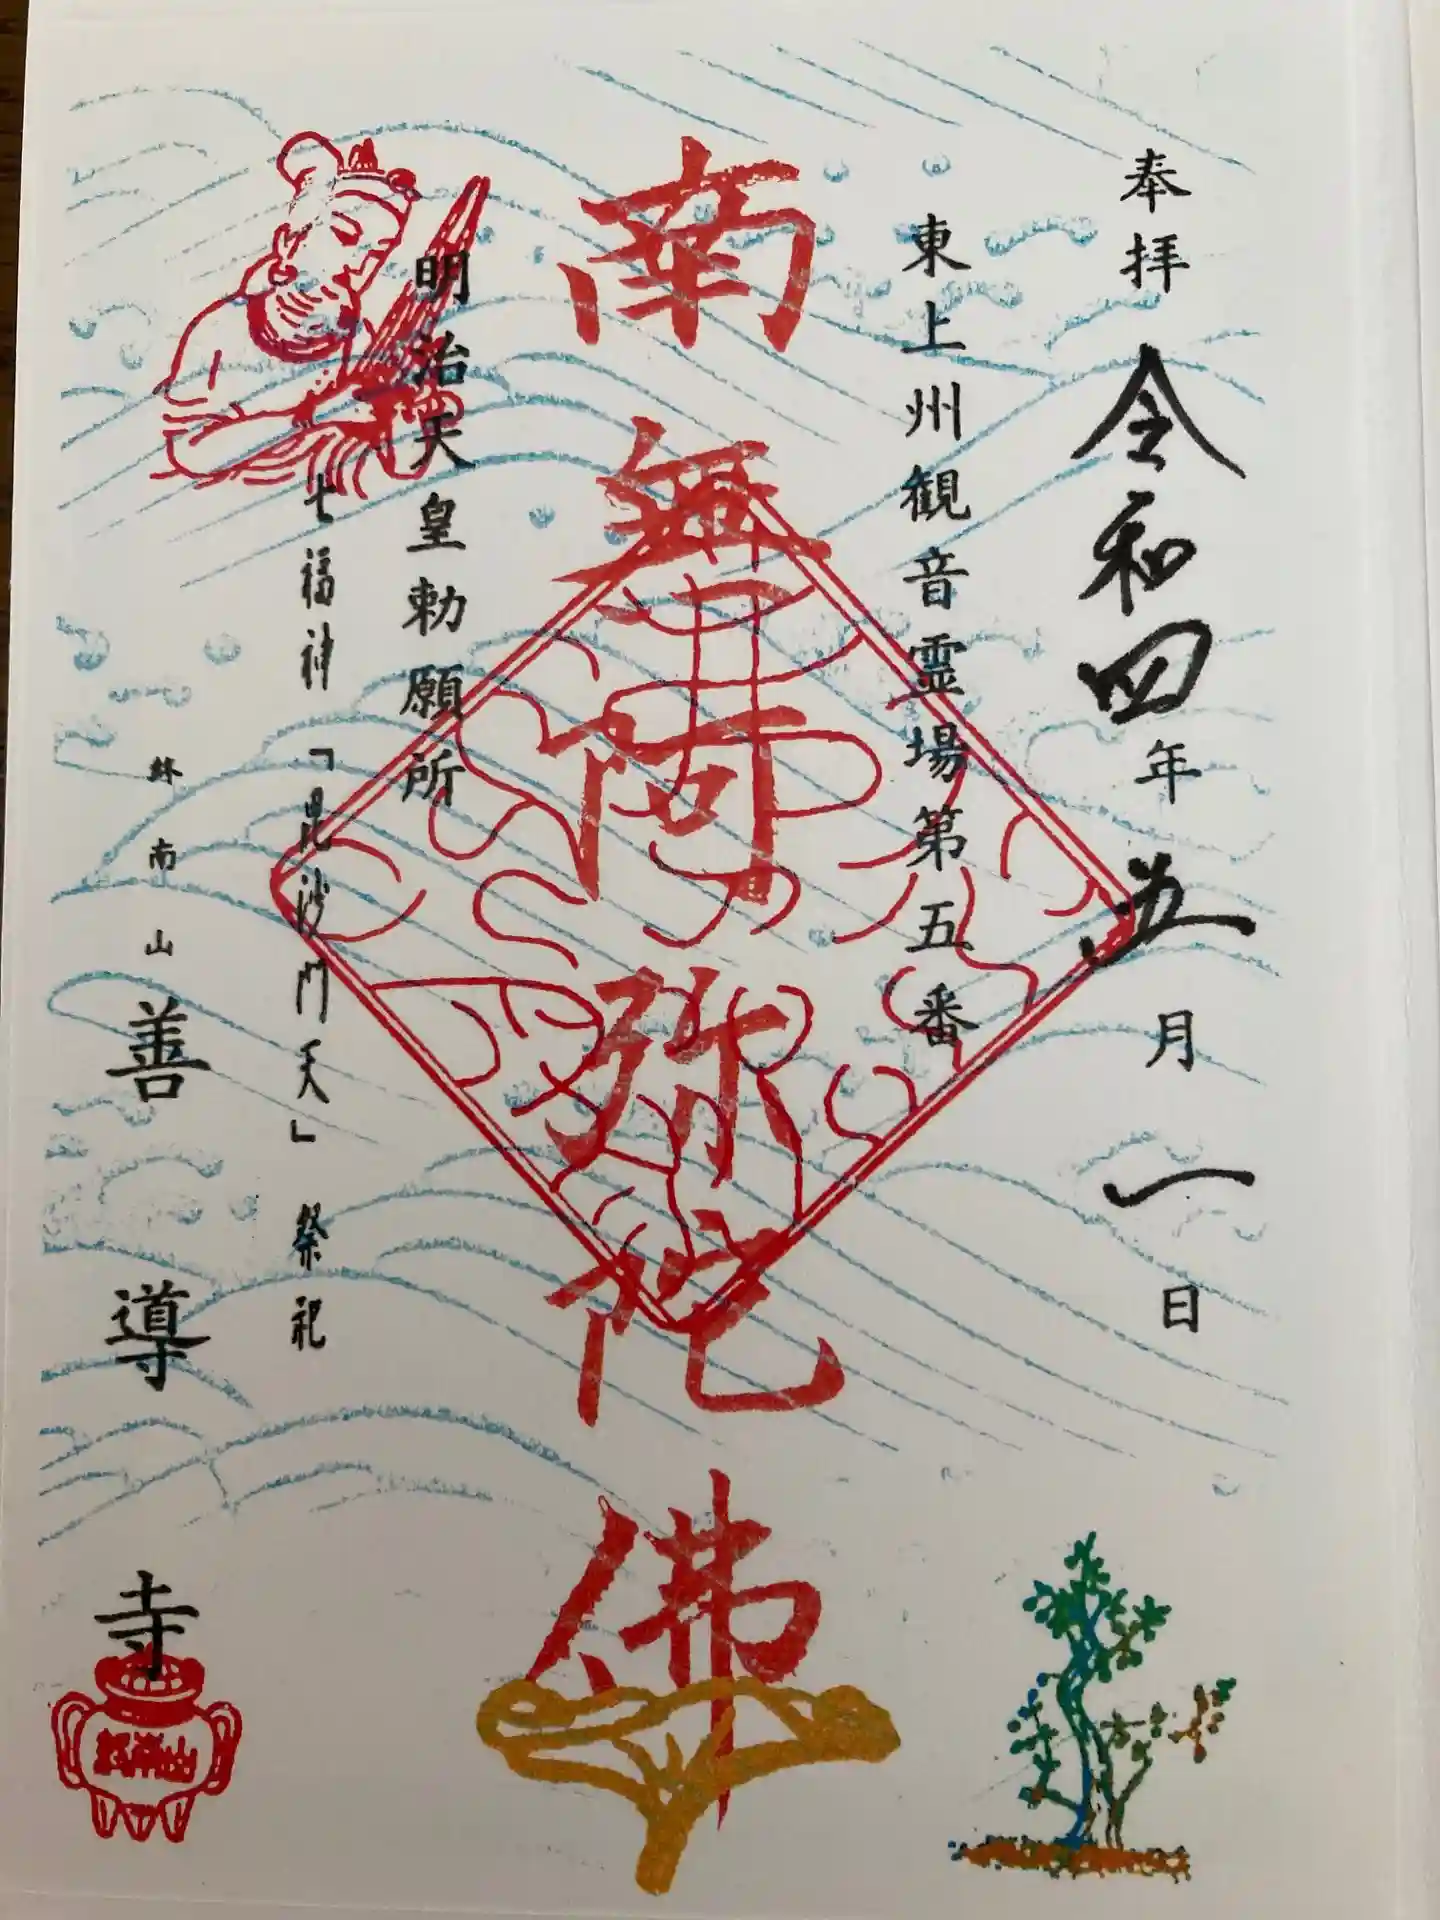 奉拝 令和四年五月一日
東上州観音霊場第五番
南無阿弥陀佛
明治天皇勅願所
七福神「毘沙門天」祭祀
南山 善導寺